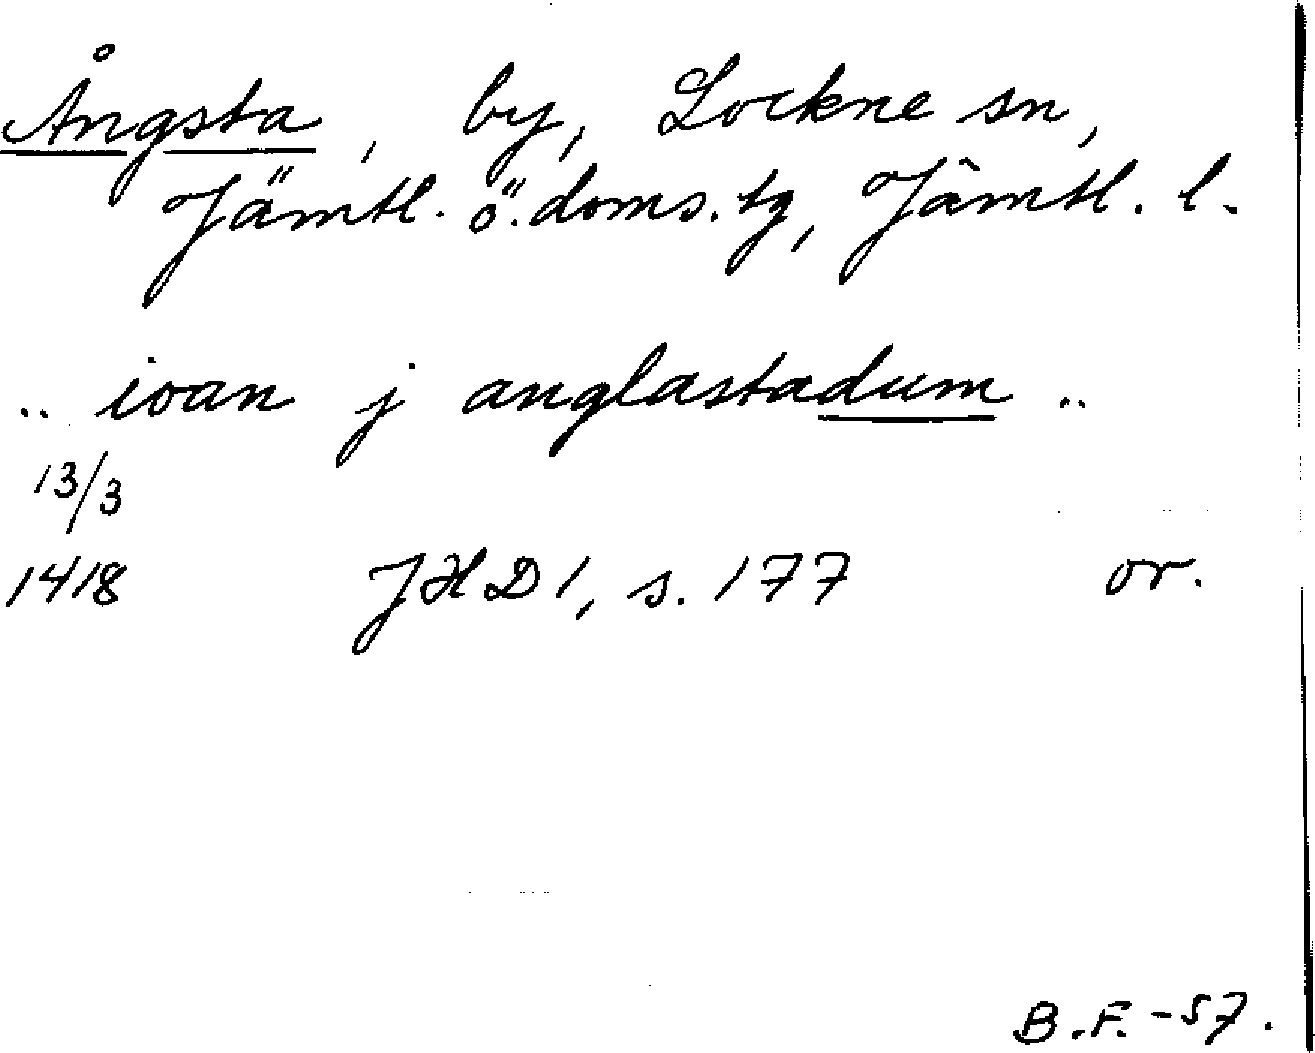 Ångsta, by, Lockne sn,
Jämtl. ö. doms. tg, Jämtl. l.
.. ioan j anglastadum ..
13/3
1418 JHD 1, s. 177 or.
B.F. -57.